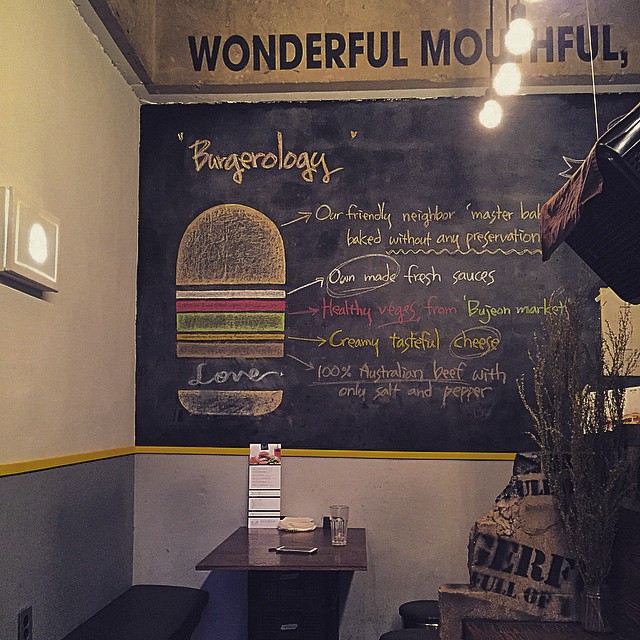 WONDERFUL MOUTHFUL,
"Burgerology"
Our friendly neighbor 'master
baked without any preservation
Own made fresh sauces
Healthy veges from 'Bujeon market'
Creamy tasteful cheese
100% Australian beef with
only salt and pepper
Love
FULL OF